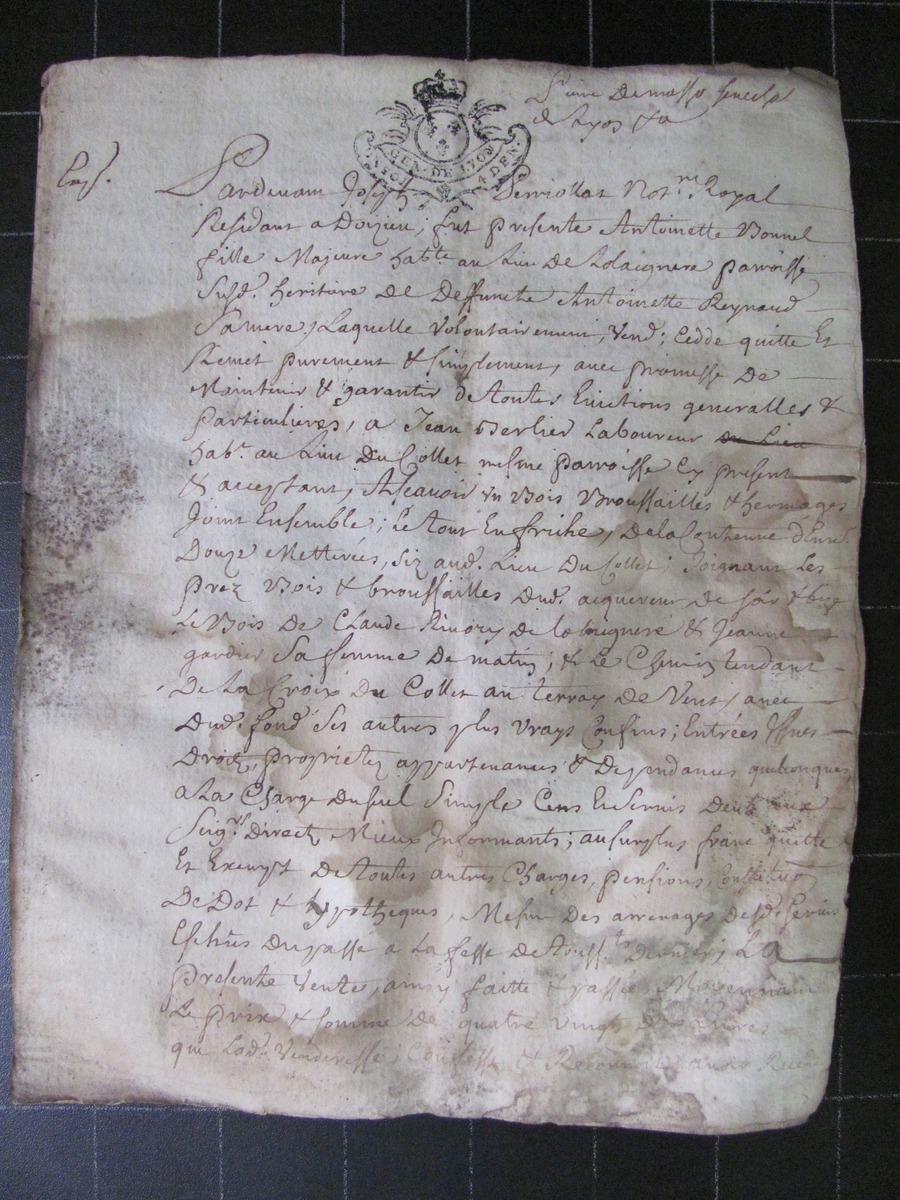 GEN. DE LYON
4 DEN.
de Lyon
Pardevant Joseph Perriollat Not.re Royal
Residant a Doizieu; fut presente Antoinette Bonnel
fille Majeure hab.te au Lieu De parroisse
Susd. heritiere de Deffuncte Antoinette Reynaud
Sa mere, Laquelle Volontairement, Vend; Cedde quitte Et
Remet purement & simplement, avec promesse De
Maintenir & garantir de toutes Evictions generalles &
Particulieres, a Jean Berlier Laboureur du Lieu
hab.t au Lieu Du Collet mesme parroisse Cy present
& acceptant, Ascavoir un Bois Broussailles & hermages
Joint Ensemble; Le tout En friche, De la Contenue d'Env.
Douze Metterées, Siz aud. Lieu Du Collet; Joignant Les
Prez Bois & broussailles Dud. acquereur de soir & bize
Le Bois De Claude & Jeanne
gardier Sa femme De matin; & Le Chemin tendant
De La Croix Du Collet au terray de Vent, avec
Dud. fond Ses autres plus Vrays Confins; Entrées Issues
Droits, proprietez appartenances & Dependances quelconques
a La Charge Du seul Simple Cens En Servis Deub aux
Seig.rs Directz Mieux Informants; au surplus franc quitte
Et Exempt De toutes autres Charges, pensions, Constitu.on
De Dot & hypotheques, Mesme Des arrerages desd. servis
Escheus Du passé a La feste de Touss.ts Dernier; La
Presente Vente, ainsy faitte & passée, Moyennant
Le prix & somme De quatre vingt Livres
que Lad. Venderesse, Confesse &